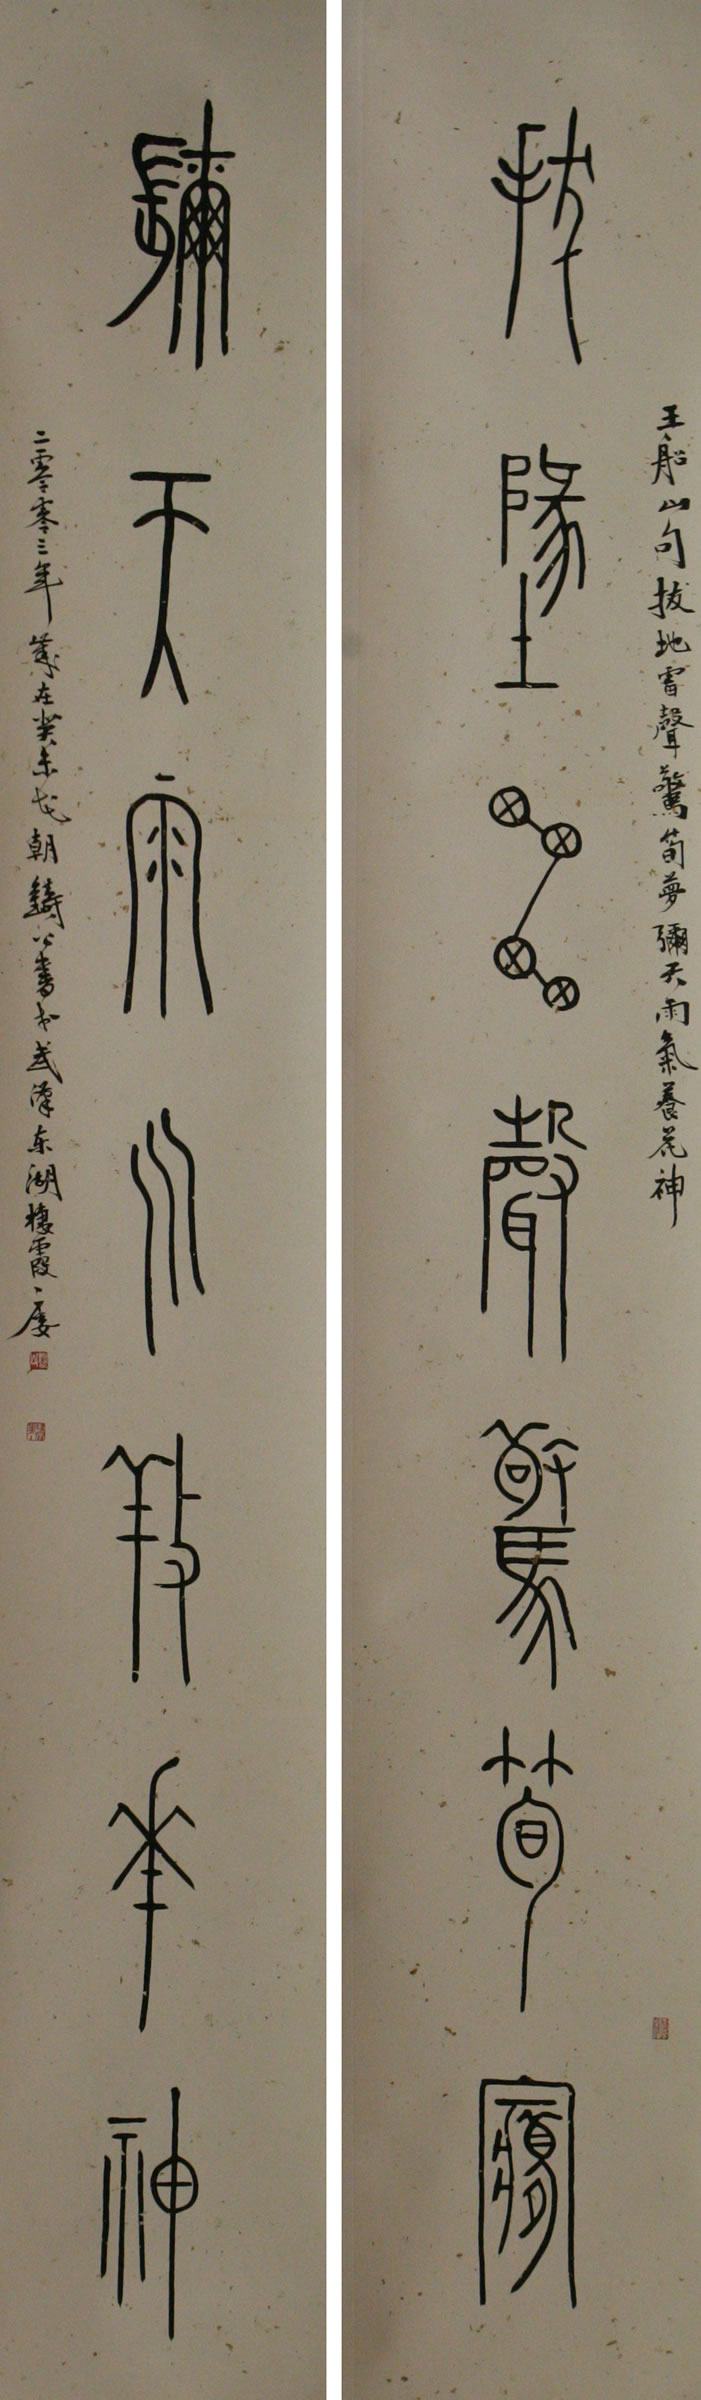 拔地雷聲驚筍夢
王船山句拔地雷聲驚筍夢彌天雨氣養花神
彌天雨气養華神
二零零三年歲在癸未花朝鑄公書於武漢东湖棲霞小廔